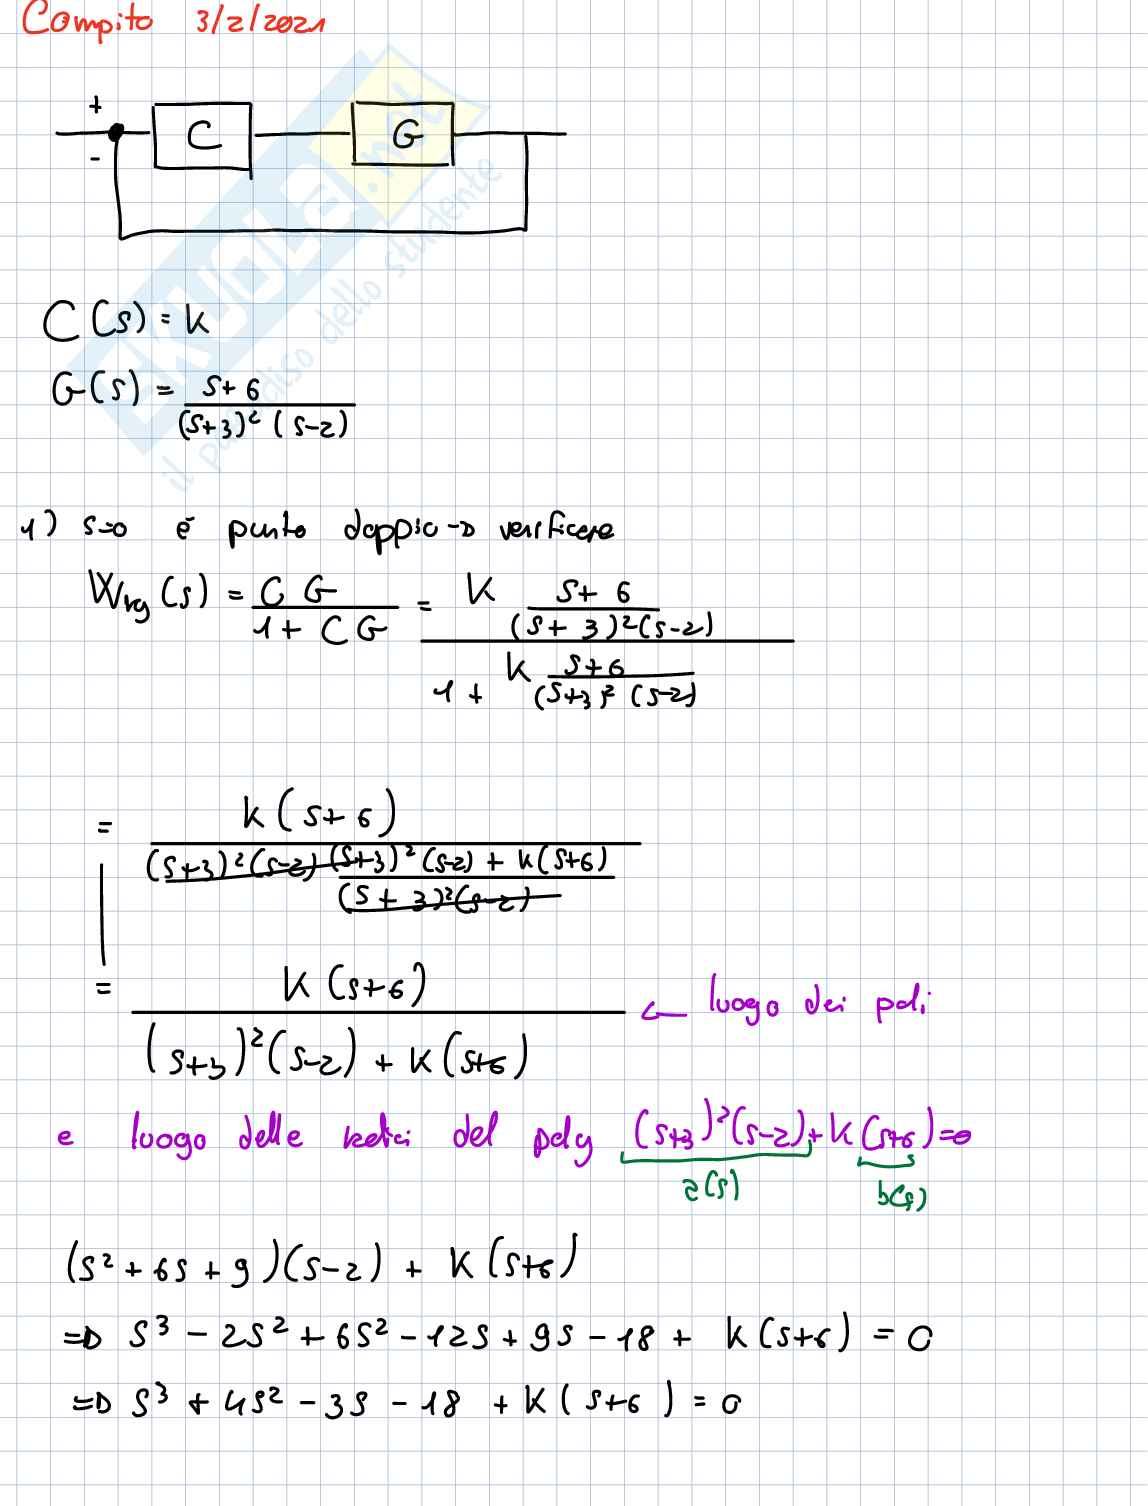 Compito 3/2/2021
+
C G
-
C(s) = K
G(s) = \frac{s+6}{(s+3)^2 (s-2)}
1) s=0 è punto doppio → verificare
W_{ry}(s) = \frac{C G}{1 + C G} = \frac{K \frac{s+6}{(s+3)^2(s-2)}}{1 + K \frac{s+6}{(s+3)^2 (s-2)}}
= \frac{K(s+6)}{(s+3)^2(s-2) \frac{(s+3)^2(s-2) + K(s+6)}{(s+3)^2(s-2)}}
= \frac{K(s+6)}{(s+3)^2(s-2) + K(s+6)} ← luogo dei poli
e luogo delle radici del poly (s+3)^2(s-2) + K(s+6) = 0
a(s) b(s)
(s^2 + 6s + 9)(s-2) + K(s+6)
=D s^3 - 2s^2 + 6s^2 - 12s + 9s - 18 + K(s+6) = 0
=D s^3 + 4s^2 - 3s - 18 + K(s+6) = 0
SKUOLA.net
il paradiso dello studente